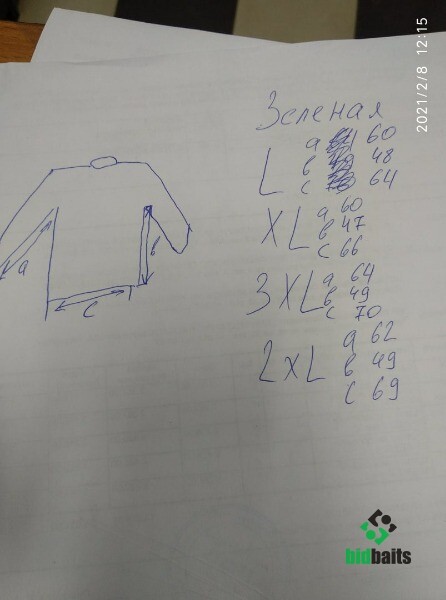 2021/2/8 12:15
Зеленая
L
a 60
в 48
c 64
XL
a 60
в 47
c 66
3XL
a 64
в 49
c 70
2XL
a 62
в 49
c 69
a
в
c
bidbaits